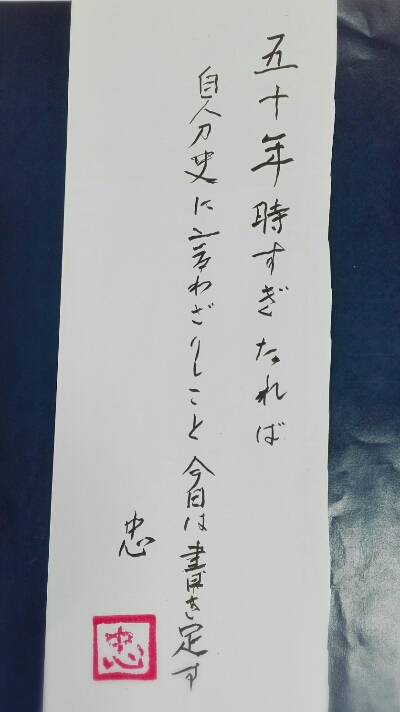 五十年時すぎたれば
自分史に言わざりしこと今日は書き定す
忠
忠